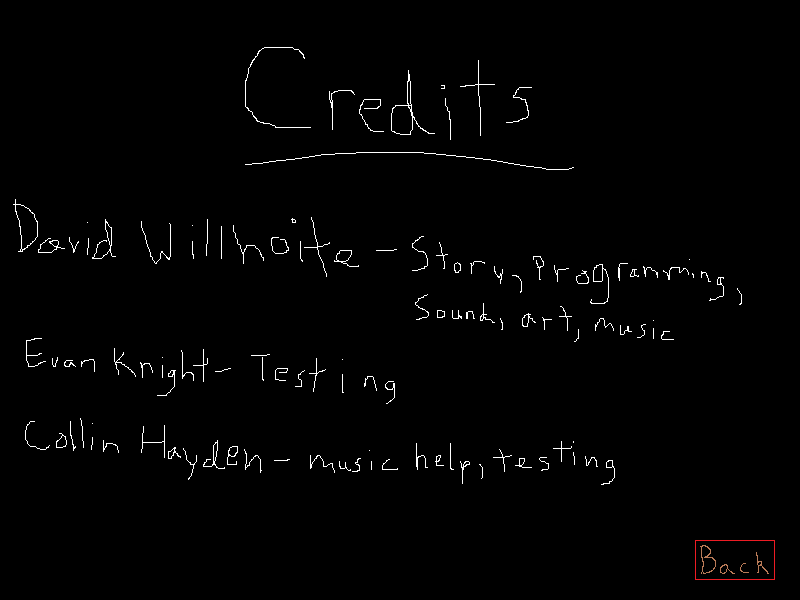 Credits
David Willhoite - Story, Programming,
Sound, art, music
Evan Knight - Testing
Collin Hayden - music help, testing
Back